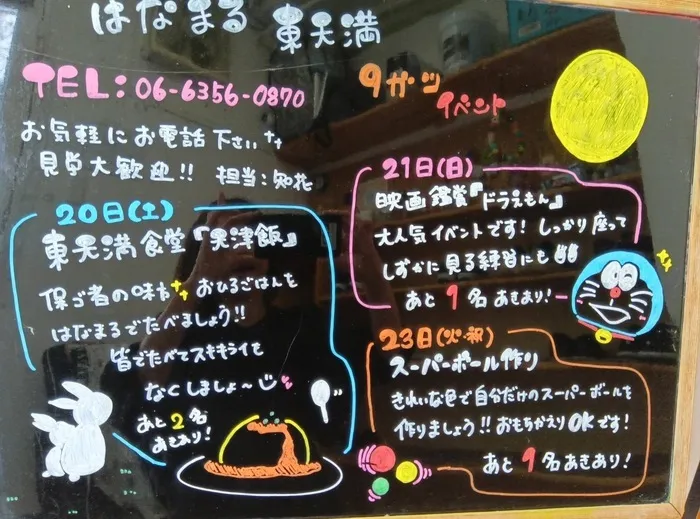 はなまる 東天満
TEL:06-6356-0870
9ガツ
イベント
お気軽にお電話下さい
見学大歓迎!! 担当:知花
20日(土)
東天満食堂『天津飯』
保ゴ者の味方 おひるごはんを
はなまるでたべましょう!!
皆でたべてスキキライを
なくしましょ〜
あと2名
あきあり!
21日(日)
映画鑑賞『ドラえもん』
大人気イベントです! しっかり座って
しずかに見る練習にも
あと1名あきあり!
23日(火・祝)
スーパーボール作り
きれいな色で自分だけのスーパーボールを
作りましょう!! おもちかえりOKです!
あと1名あきあり!